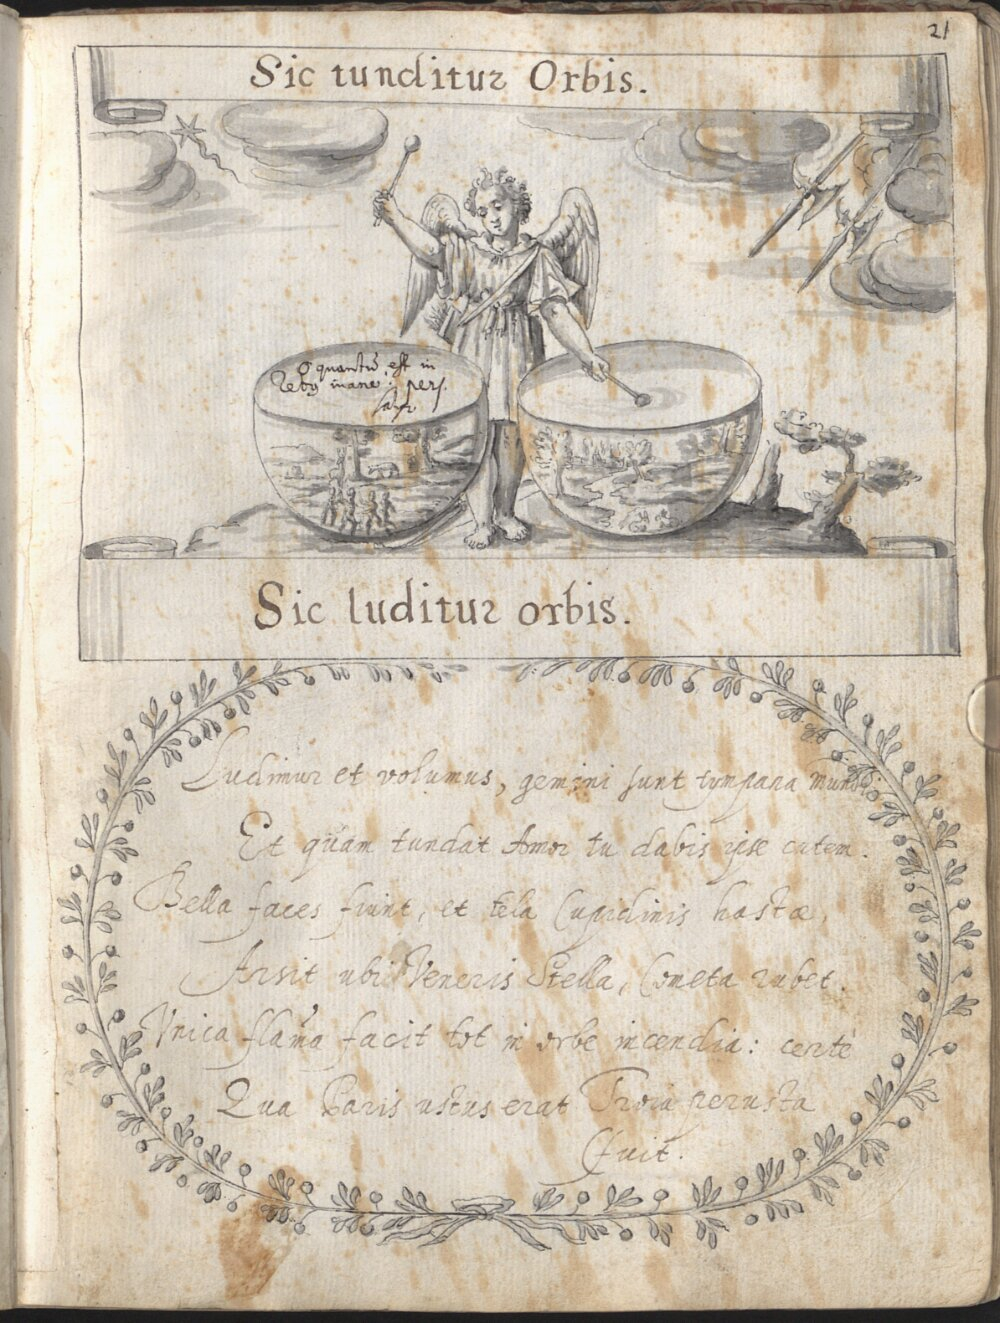 21
Sic tunditur Orbis.
O quantū est in
rebus inane. pers.
satyr
Sic luditur orbis.
Ludimur et volumus, gemini sunt tympana mundi
Et quam tundat Amor tu dabis ipse cutem.
Bella faces fiunt, et tela Cupidinis hastæ,
Arsit ubi Veneris Stella, Cometa rubet.
Vnica flāma facit tot in orbe incendia: certè
Qua Paris ustus erat Troia perusta
Fuit.